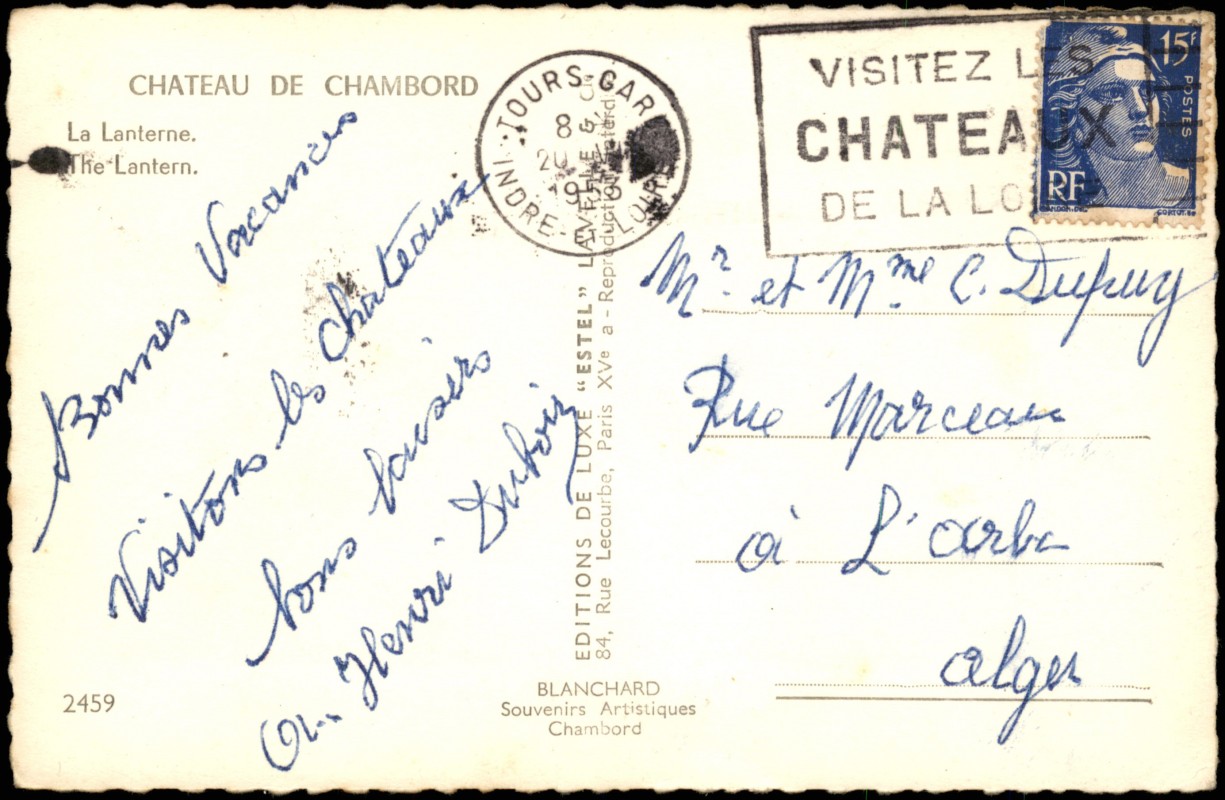 CHATEAU DE CHAMBORD
La Lanterne.
The Lantern.
Bonnes Vacances
Visitons les chateaux
bons baisers
Henri Duboiz
2459
TOURS-GARE
8
INDRE-ET-LOIRE
VISITEZ LES
CHATEAUX
DE LA LOIRE
15F
POSTES
RF
GANDON.DEL.
CORTOT.SC
EDITIONS DE LUXE "ESTEL" LAVELLE &
84, Rue Lecourbe, Paris XVe a - Reproduction interdite
BLANCHARD
Souvenirs Artistiques
Chambord
Mr. et Mme C. Dupuy
Rue Marceau
à L'arba
alger